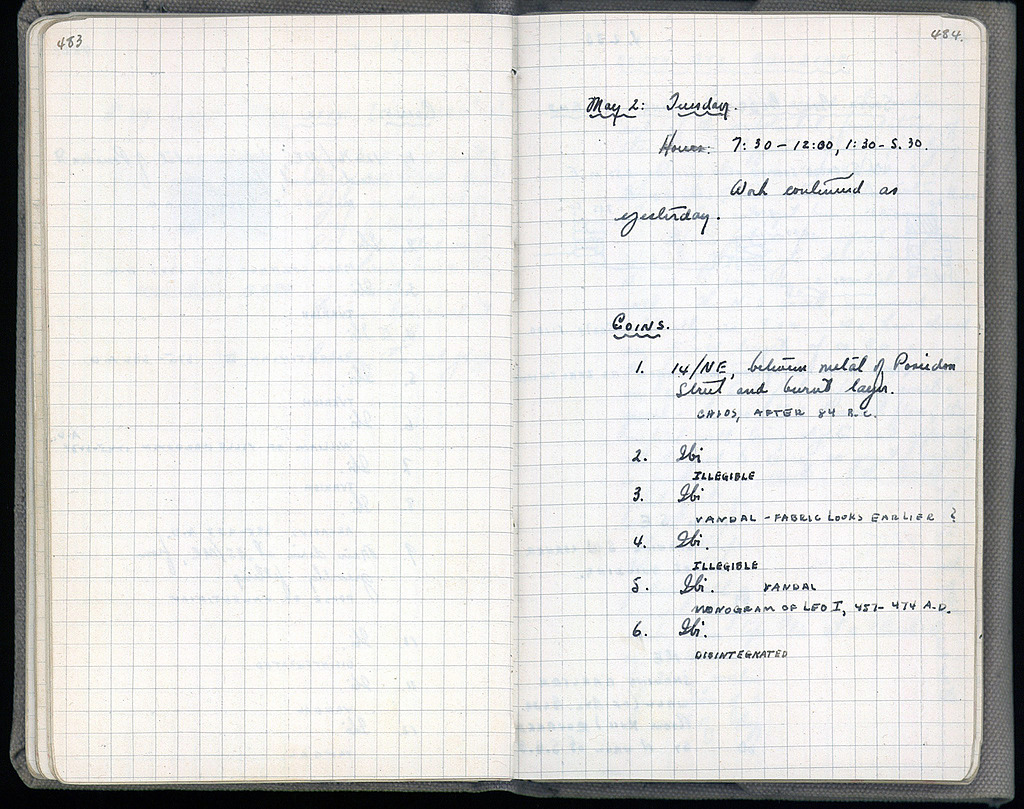 483
484.
May 2: Tuesday.
Hours: 7:30 - 12:00, 1:30 - 5.30.
Work continued as
yesterday.
COINS.
1. 14/NE, between metal of Poseidon
Street and burnt layer.
CHIOS, AFTER 84 B.C.
2. Ibi
ILLEGIBLE
3. Ibi
VANDAL - FABRIC LOOKS EARLIER ?
4. Ibi.
ILLEGIBLE
5. Ibi. VANDAL
MONOGRAM OF LEO I, 457- 474 A.D.
6. Ibi.
DISINTEGRATED